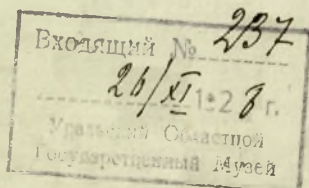 Входящий № 237
26/XI 1928 г.
Уральский Областной
Государственный Музей